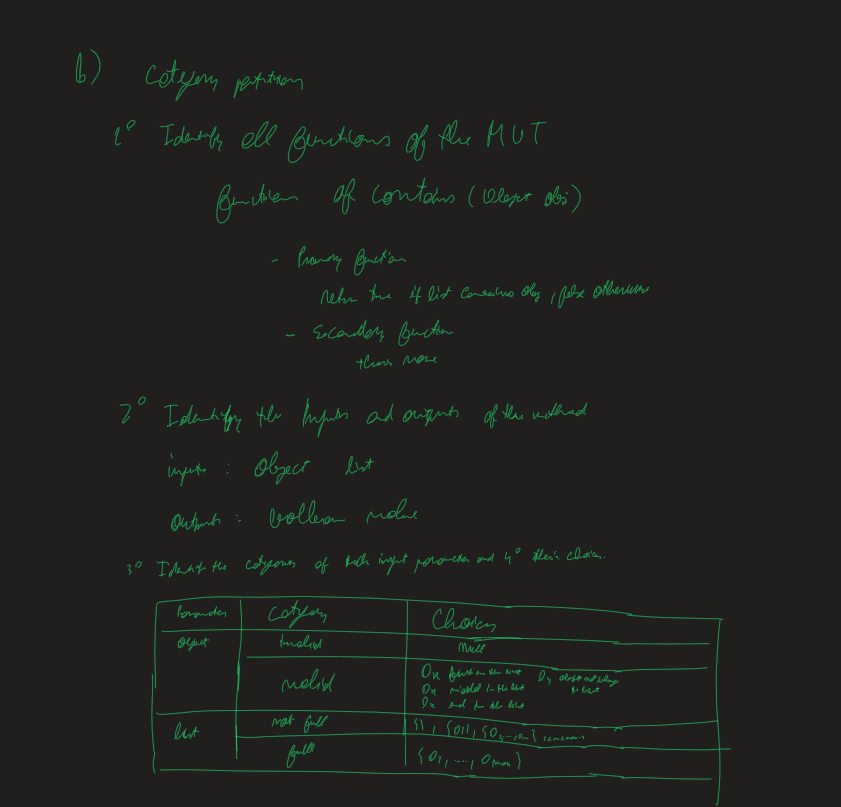 b) Category partition
1º Identify all functions of the MUT
function of contains (Object obj)
- Primary function
return true if list contains obj, false otherwise
- Secondary function
+ none
2º Identify the Inputs and outputs of the method
inputs : Object list
outputs : boolean value
3º Identify the categories of each input parameter and 4º their choices.
Parameter Category Choices
Object Invalid Null
valid Ox first in the list Oy object not belongs to list
Ox middle in the list
Ox end in the list
list not full {}, {O1}, {O1, ..., On}
full {O1, ..., Omax}